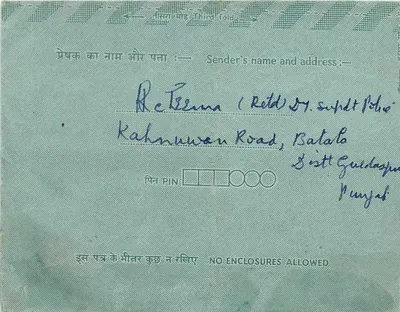 तीसरा मोड़ Third Fold
प्रेषक का नाम और पता :— Sender's name and address :—
(Retd) Dy. Supdt Police
Kahnuwan Road, Batala
Distt Gurdaspur
Punjab
पिन PIN
इस पत्र के भीतर कुछ न रखिए NO ENCLOSURES ALLOWED